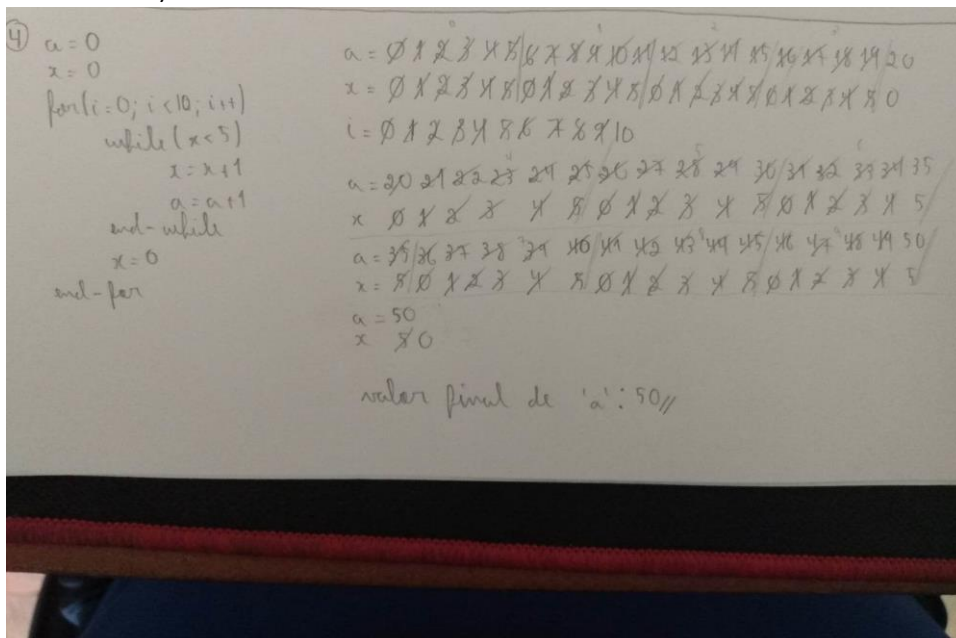 4
a = 0
x = 0
for(i=0; i<10; i++)
while (x<5)
x = x+1
a = a+1
end-while
x = 0
end-for
a = 0 1 2 3 4 5/6 7 8 9 10 11/12 13 14 15/16 17 18 19/20
x = 0 1 2 3 4 5/0 1 2 3 4 5/0 1 2 3 4 5/0 1 2 3 4 5 0
i = 0 1 2 3 4 5 6 7 8 9 10
a = 20 21 22 23 24 25/26 27 28 29 30/31 32 33 34 35
x 0 1 2 3 4 5/0 1 2 3 4 5/0 1 2 3 4 5/
a = 35/36 37 38 39 40/41 42 43 44 45/46 47 48 49 50/
x = 5/0 1 2 3 4 5 0 1 2 3 4 5 0 1 2 3 4 5
a = 50
x 5 0
valor final de 'a': 50//